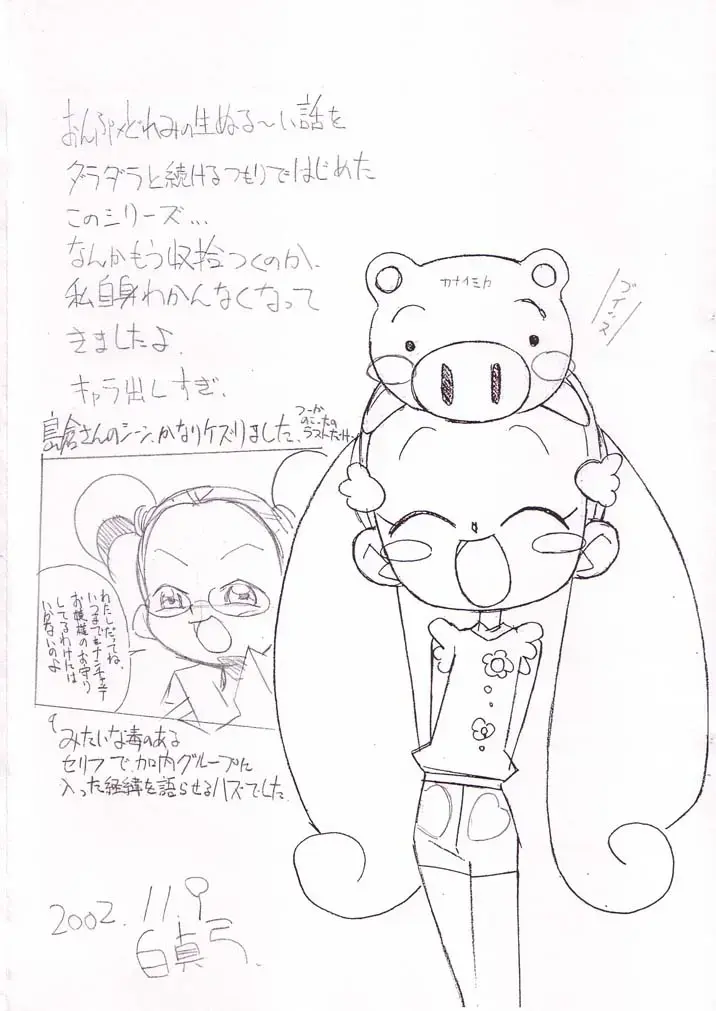 おんぷ×どれみの生ぬる～い話を
ダラダラと続けるつもりではじめた
このシリーズ…
なんかもう収拾つくのか、
私自身わかんなくなって
きましたよ.
キャラ出しすぎ.
島倉さんのシーン、かなりケズりました.
つーか
のこったの
ラストだけ
カナイミカ
ブイッス
わたしだってね、
いつまでも
お嬢様のお守り
してるわけには
いかないのよ
みたいな毒のある
セリフで加内グループに
入った経緯を語らせるハズでした.
2002.11.9
白真弓.